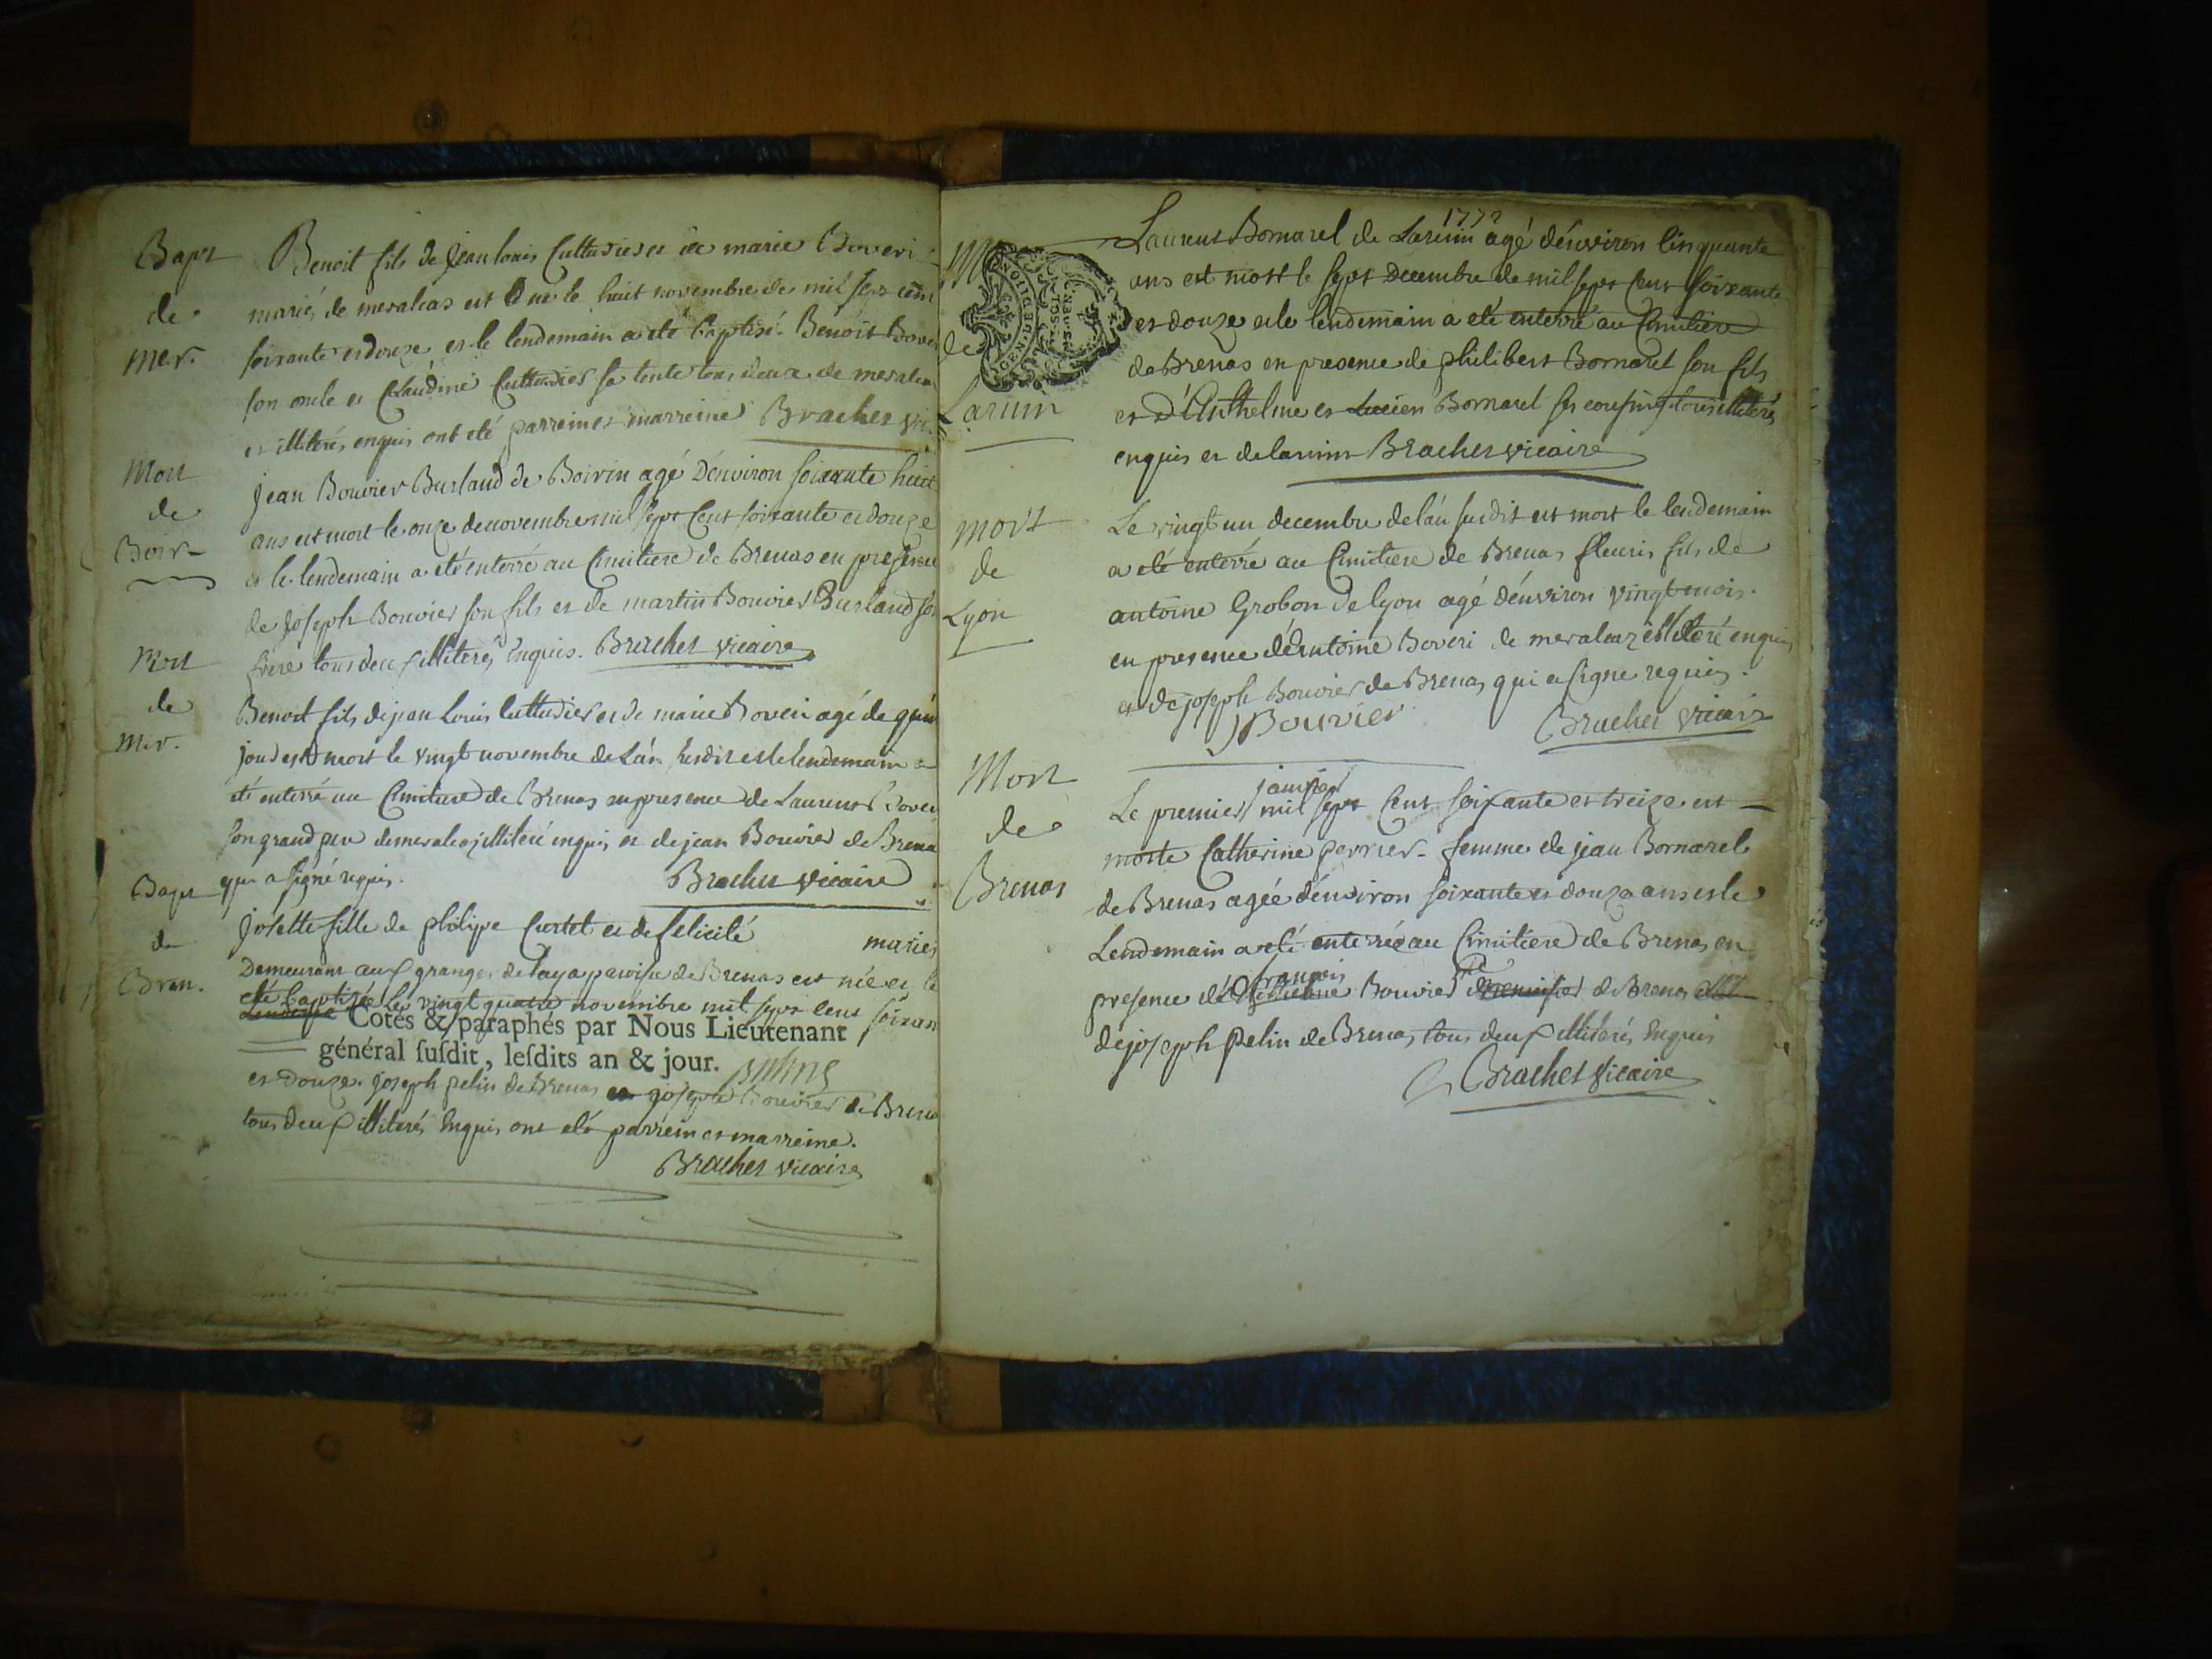 Bapt
de
mer.
Benoit fils de jean louis Cuttadier et de marie Boveri
mariés de meraleas est né le huit novembre de mil sept cent
soixante et douze et le lendemain a eté baptisé. Benoit Bover
son oncle et Claudine Cuttadier sa tente tous deux de meraleas
et illiterés enquis ont eté parrein et marreine Brachet vic.
Mort
de
Boir
jean Bouvier Burland de Boirin agé d'environ soixante huit
ans est mort le onze de novembre mil sept cent soixante et douze
et le lendemain a eté enterré au Cimitiere de Brenas en presence
de joseph Bouvier son fils et de martin Bouvier Burland son
frere tous deux illiterés enquis. Brachet vicaire
Mort
de
Mer.
Benoit fils de jean Louis Cuttadier et de marie Boveri agé de
jours est mort le vingt novembre de l'an susdit et le lendemain a
eté enterré au Cimitiere de Brenas en presence de Laurent Bover
son grand pere de meraleas illiteré enquis et de jean Bouvier de Brena
qui a signé requis. Brachet vicaire
Bapt
de
Bren.
josette fille de philipe Curtet et de felicité mariés
Demeurant aux granges de paroisse de Brenas est née et
eté baptisée le vingt quatre novembre mil sept cent soixan
Cotés & paraphés par Nous Lieutenant
général susdit, lesdits an & jour.
et douze. joseph pelin de Brenas et josephe Bouvier de Brena
tous deux illiterés enquis ont eté parrein et marreine.
Brachet vicaire
1772
M
de
Larinin
Laurent Bornarel de Larinin agé d'environ Cinquante
ans est mort le sept Decembre de mil sept Cent soixante
et douze et le lendemain a eté enterré au Cimitiere
de Brenas en presence de philibert Bornarel son fils
et d'Anthelme et Lucien Bornarel ses cousins tous illiterés
enquis et de larinin Brachet vicaire
mort
de
Lyon
Le vingt un decembre de l'an susdit est mort le lendemain
a eté enterré au Cimitiere de Brenas fleuris fils de
antoine Grobon de lyon agé d'environ vingt mois.
en presence d'Antoine Boveri de meraleaz illiteré enquis
et de joseph Bouvier de Brenas qui a signe requis.
J Bouvier Brachet vicaire
Mort
de
Brenas
janvier
Le premier mil sept Cent soixante et treize est
morte Catherine perrier femme de jean Bornarel
de Brenas agée d'environ soixante et douze ans et le
Lendemain a eté enterrée au Cimitiere de Brenas en
françois
presence de Bouvier de Brenas et
de joseph pelin de Brenas, tous deux illiterés enquis
Brachet vicaire